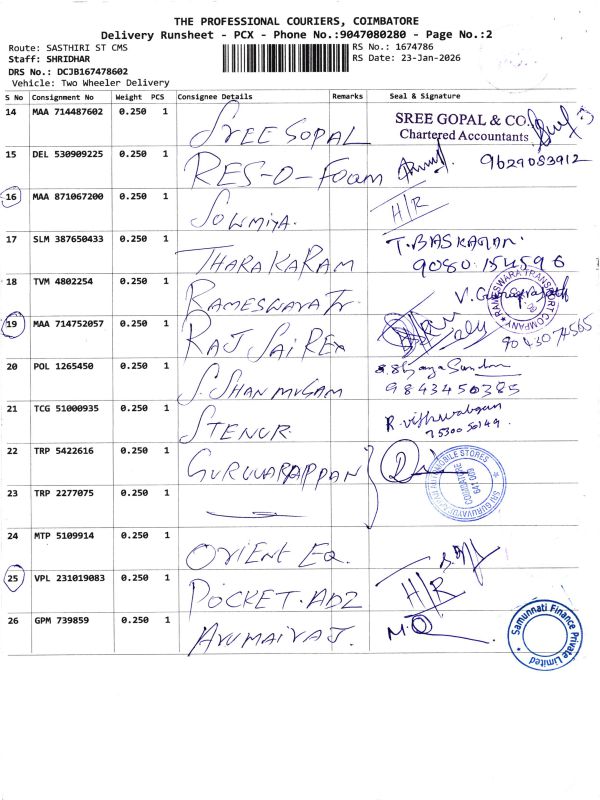 THE PROFESSIONAL COURIERS, COIMBATORE
Delivery Runsheet - PCX - Phone No.:9047080280 - Page No.:2
Route: SASTHIRI ST CMS
RS No.: 1674786
Staff: SHRIDHAR
RS Date: 23-Jan-2026
DRS No.: DCJB167478602
Vehicle: Two Wheeler Delivery
S No Consignment No Weight PCS Consignee Details Remarks Seal & Signature
14 MAA 714487602 0.250 1 SREE GOPAL SREE GOPAL & CO. Chartered Accountants
15 DEL 530909225 0.250 1 RES-O-Foam 9629083912
16 MAA 871067200 0.250 1 SOWMIYA. H/R
17 SLM 387650433 0.250 1 THARAKARAM T. BASKARAN. 9080 154596
18 TVM 4802254 0.250 1 RAMESWARA Tr. RAMESWARA TRANSPORT COMPANY
19 MAA 714752057 0.250 1 RAJ SAI REX 9043074565
20 POL 1265450 0.250 1 S. SHANMUGAM 9843450385
21 TCG 51000935 0.250 1 STENUR.
22 TRP 5422616 0.250 1 GURUVARAPPAN
23 TRP 2277075 0.250 1
24 MTP 5109914 0.250 1 ORIENT EQ.
25 VPL 231019083 0.250 1 POCKET. ADZ H/R
26 GPM 739859 0.250 1 ARUMAIRAJ. Samunnati Finance Private Limited